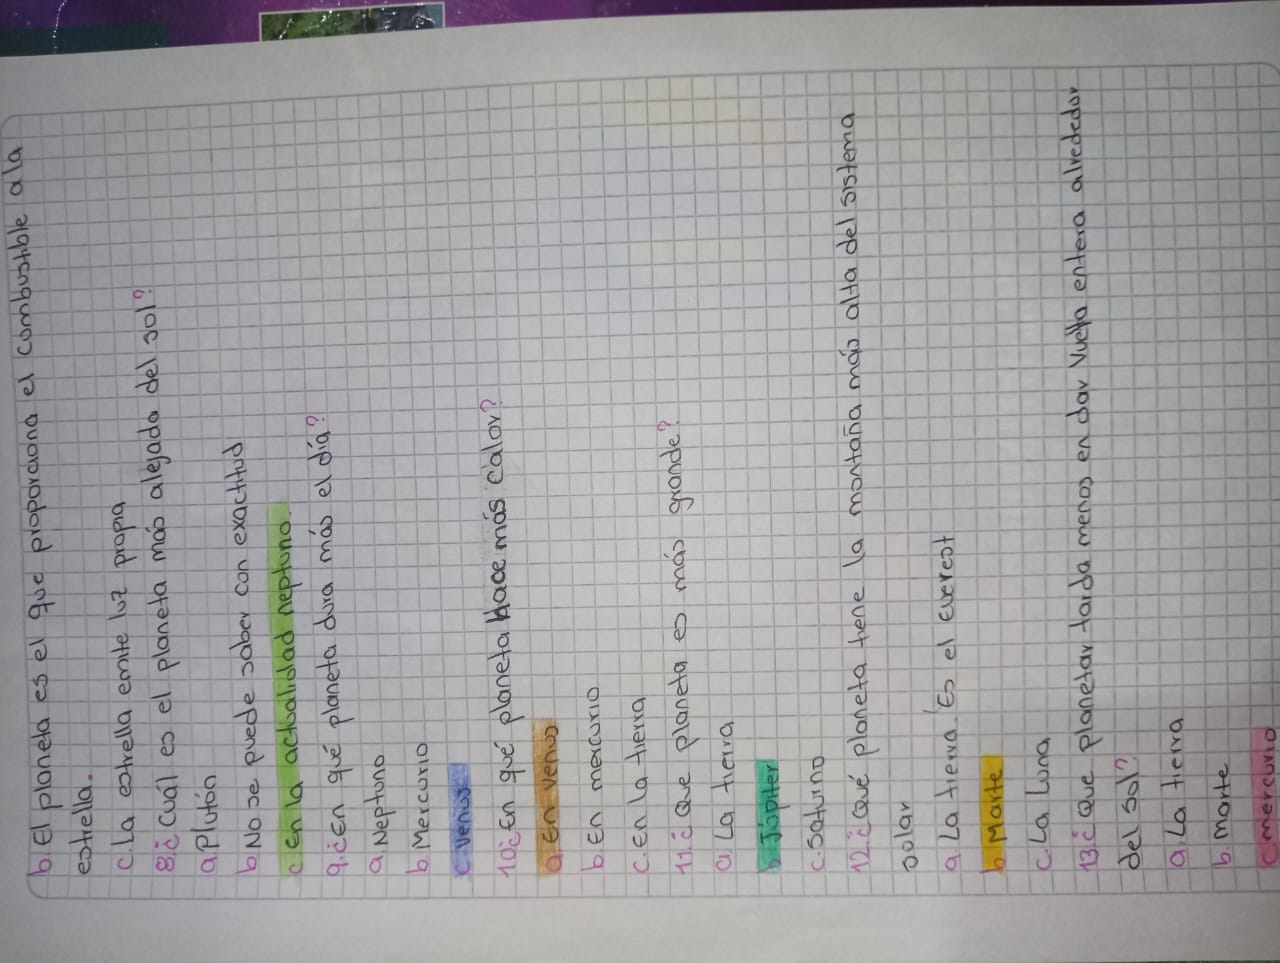 b. El planeta es el que proporciona el combustible a la
estrella.
c. La estrella emite luz propia
8. ¿Cuál es el planeta más alejado del sol?
a. Plutón
b. No se puede saber con exactitud
c. en la actualidad neptuno.
9. ¿En qué planeta dura más el día?
a. Neptuno
b. Mercurio
c. venus
10. ¿En qué planeta hace más calor?
a. En venus
b. En mercurio
c. En la tierra
11. ¿Que planeta es más grande?
a. La tierra
b. Júpiter
c. saturno
12. ¿Qué planeta tiene la montaña más alta del sistema
solar
a. La tierra. Es el everest
b. Marte
c. La Luna
13. ¿Que planetar tarda menos en dar vuelta entera alrededor
del sol?
a. La tierra
b. marte
c. mercurio